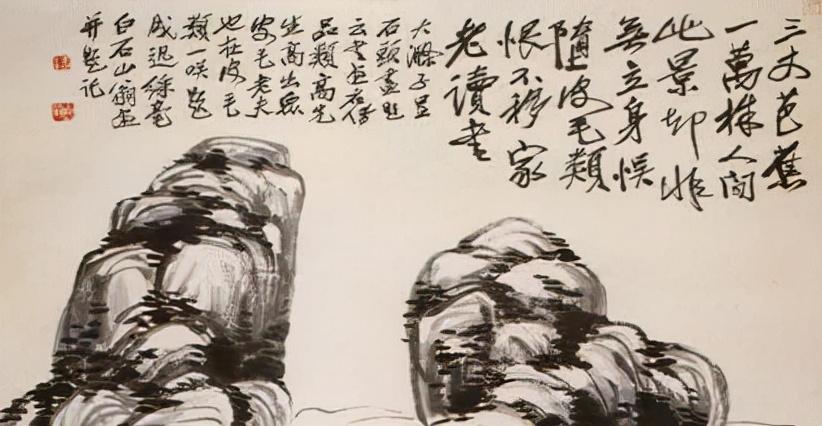 三丈芭蕉
一萬株人間
此景却非
無立身悮
墮皮毛類
恨不移家
老讀書
大滌子呈
石頭畫題
云書畫名傳
品類高先
生高出眾
皮毛老夫
也在皮毛
類一咲題
成迅綵毫
白石山翁畫
并題記